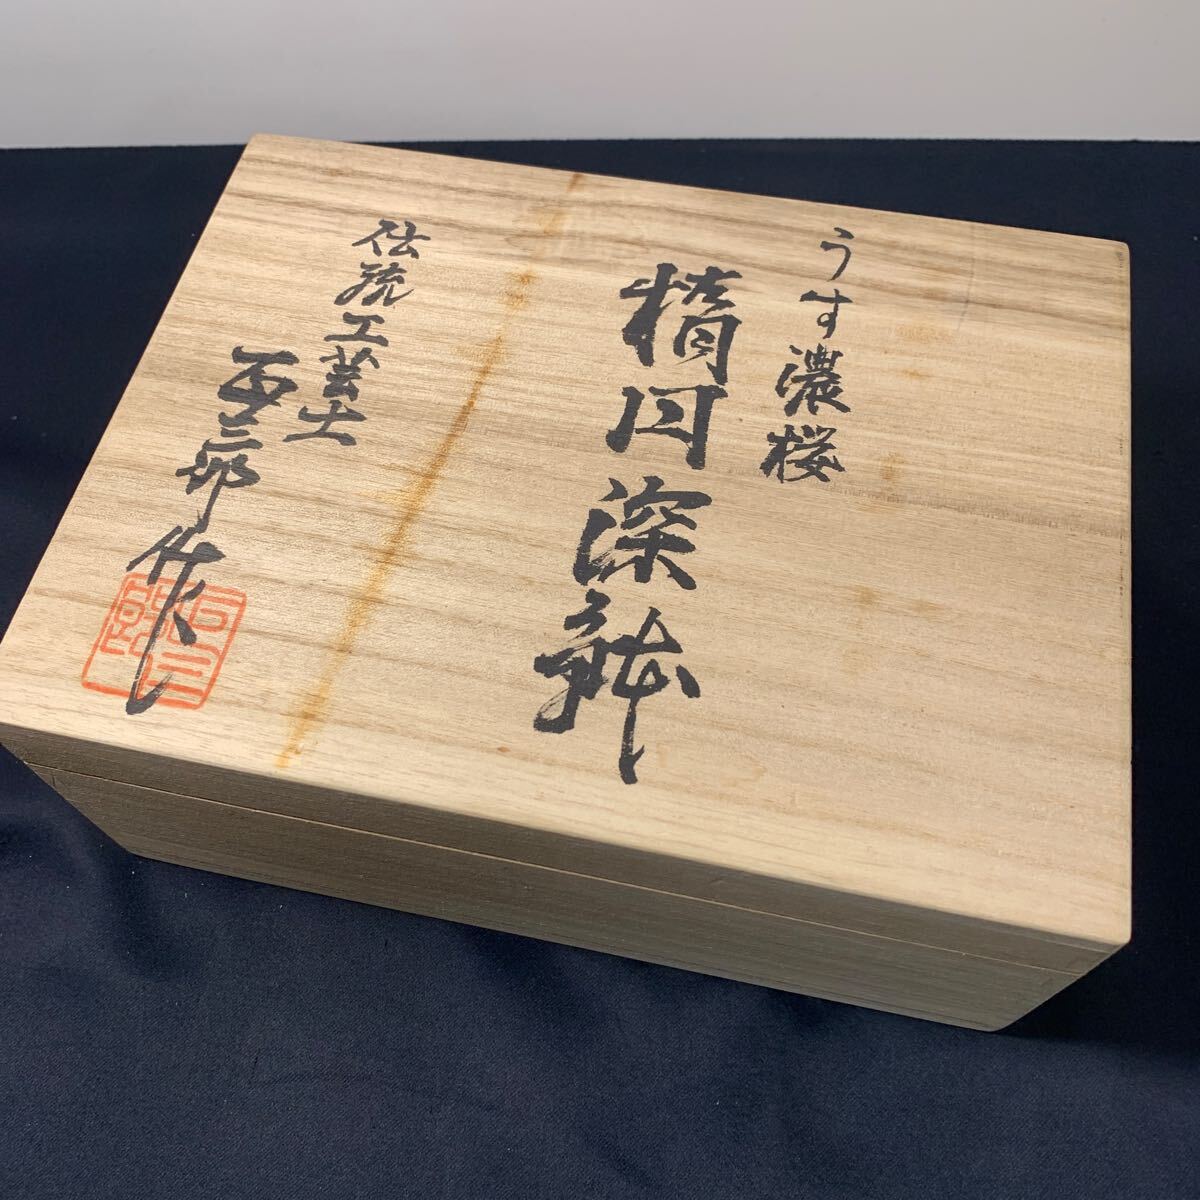 うす濃桜
楕円深鉢
伝統工芸士
三郎作